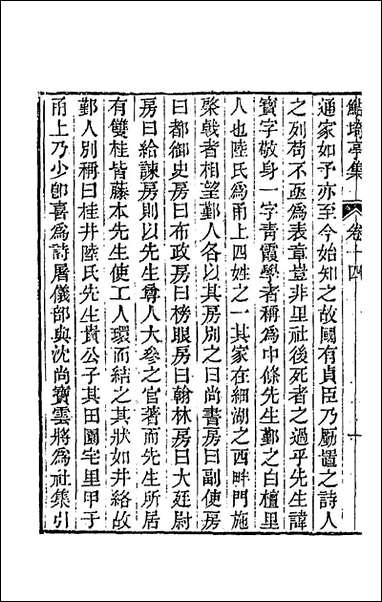 鮚埼亭集
卷十四
十
通家如予亦至今始知之故國有貞臣乃厠置之詩人
之列苟不亟爲表章豈非里社後死者之過乎先生諱
寶字敬身一字青霞學者稱爲中條先生鄞之白檀里
人也陸氏爲甬上四姓之一其家在細湖之西畔門施
棨戟者相望鄞人各以其房別之曰尚書房曰副使房
曰都御史房曰布政房曰榜眼房曰翰林房曰大廷尉
房曰給諫房則以先生尊人大參之官著而先生所居
有雙桂皆藤本先生使工人環而結之其狀如井絡故
鄞人別稱曰桂井陸氏先生貴公子其田園宅里甲于
甬上乃少卽喜爲詩屠儀部與沈尚寶雲將爲社集引